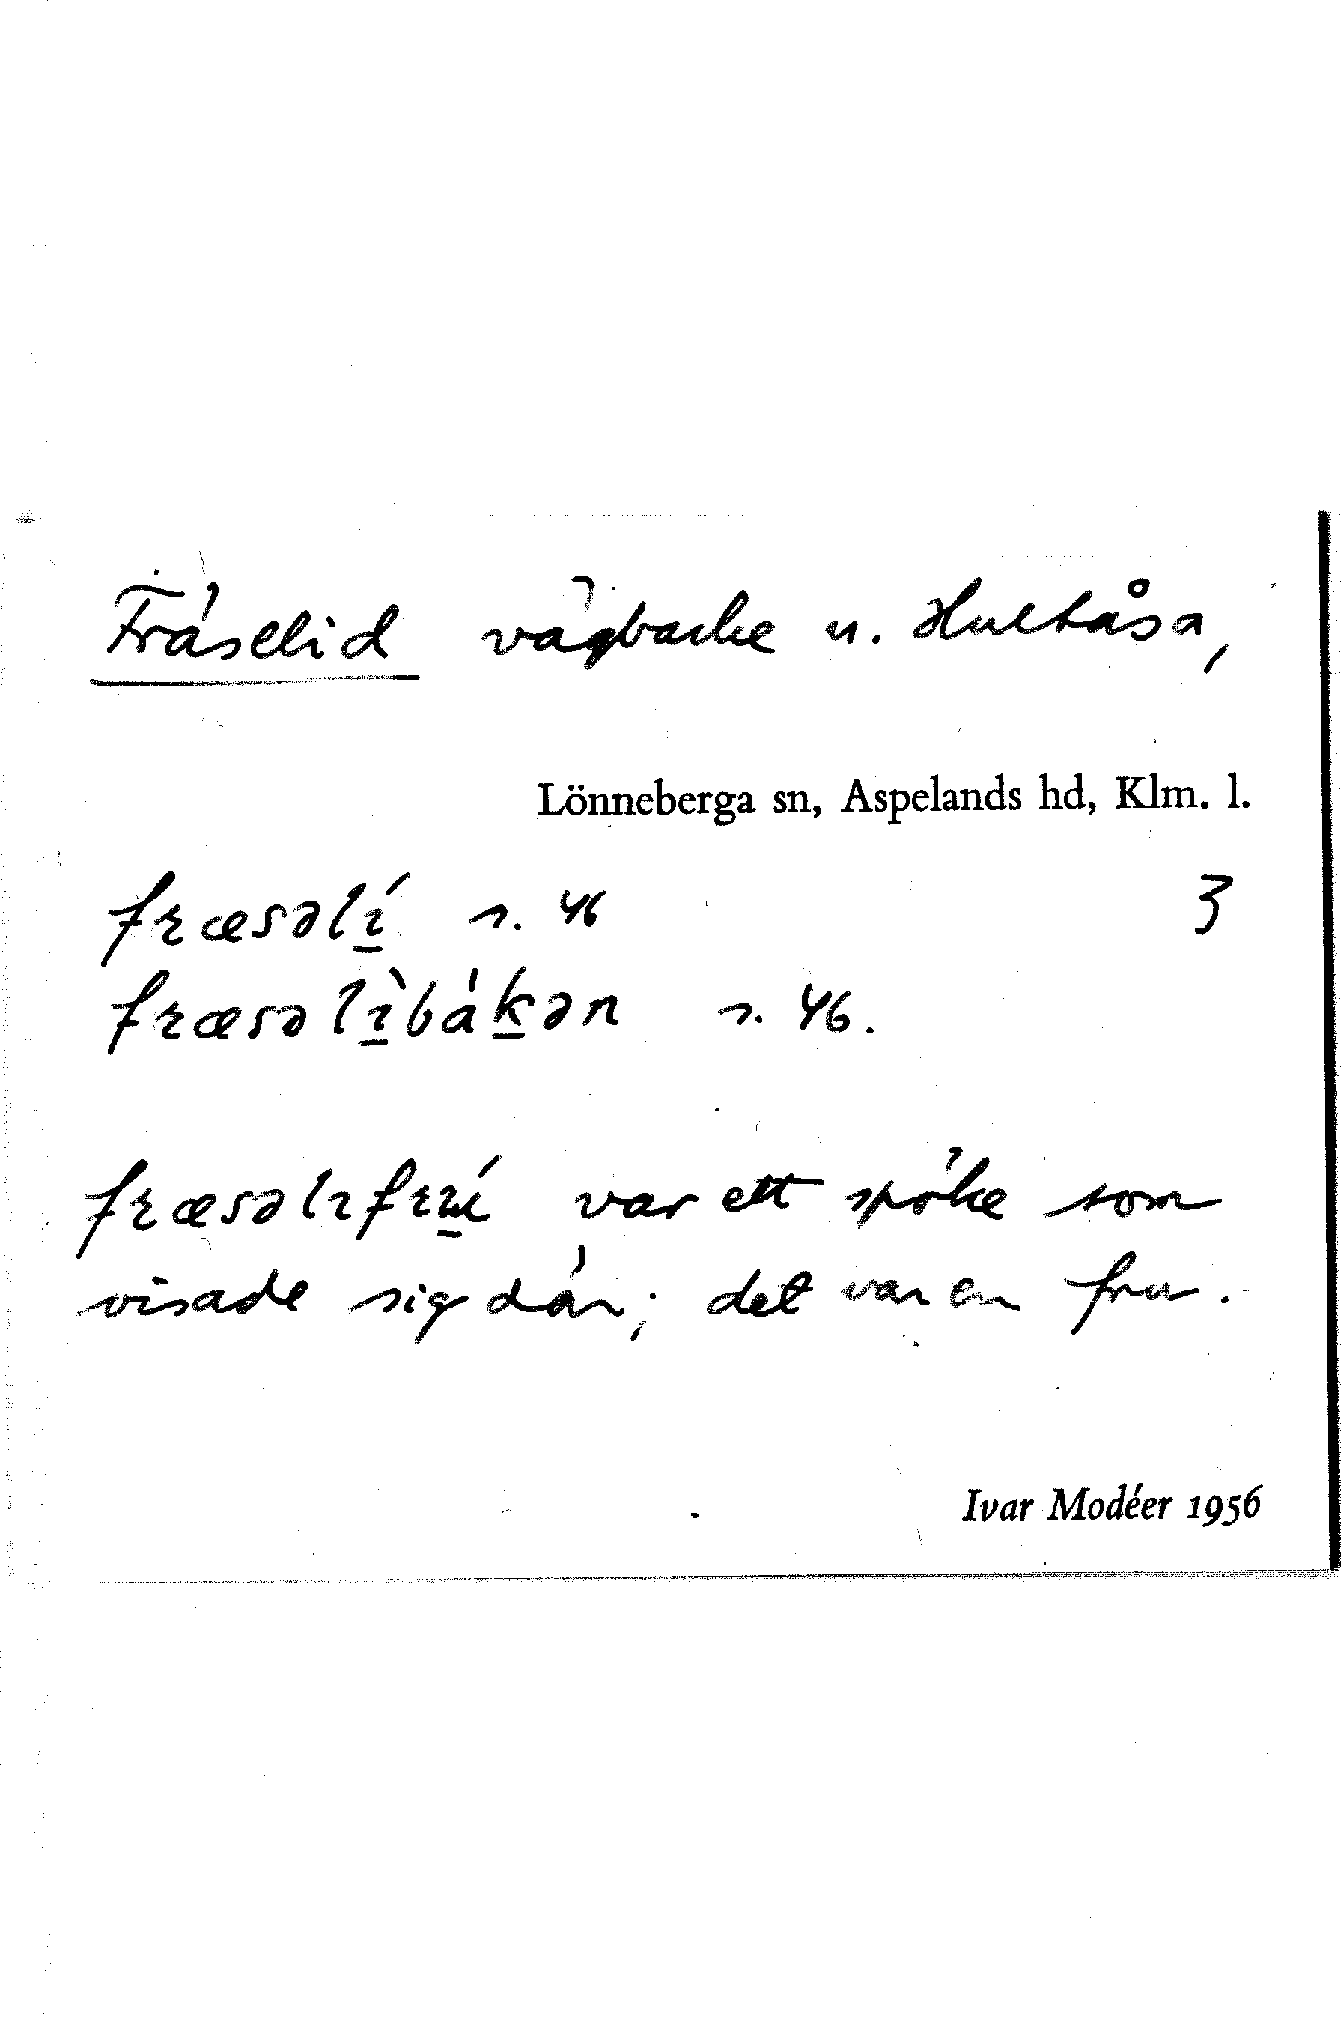 Fräselid vägbacke u. Hultåsa,
Lönneberga sn, Aspelands hd, Klm. l.
fræsəlɪ́ s. 46 3
fræsəlɪ̀bákən s. 46.
fræsəlɪfrú var ett spöke som
visade sig där; det var en fru.
Ivar Modéer 1956